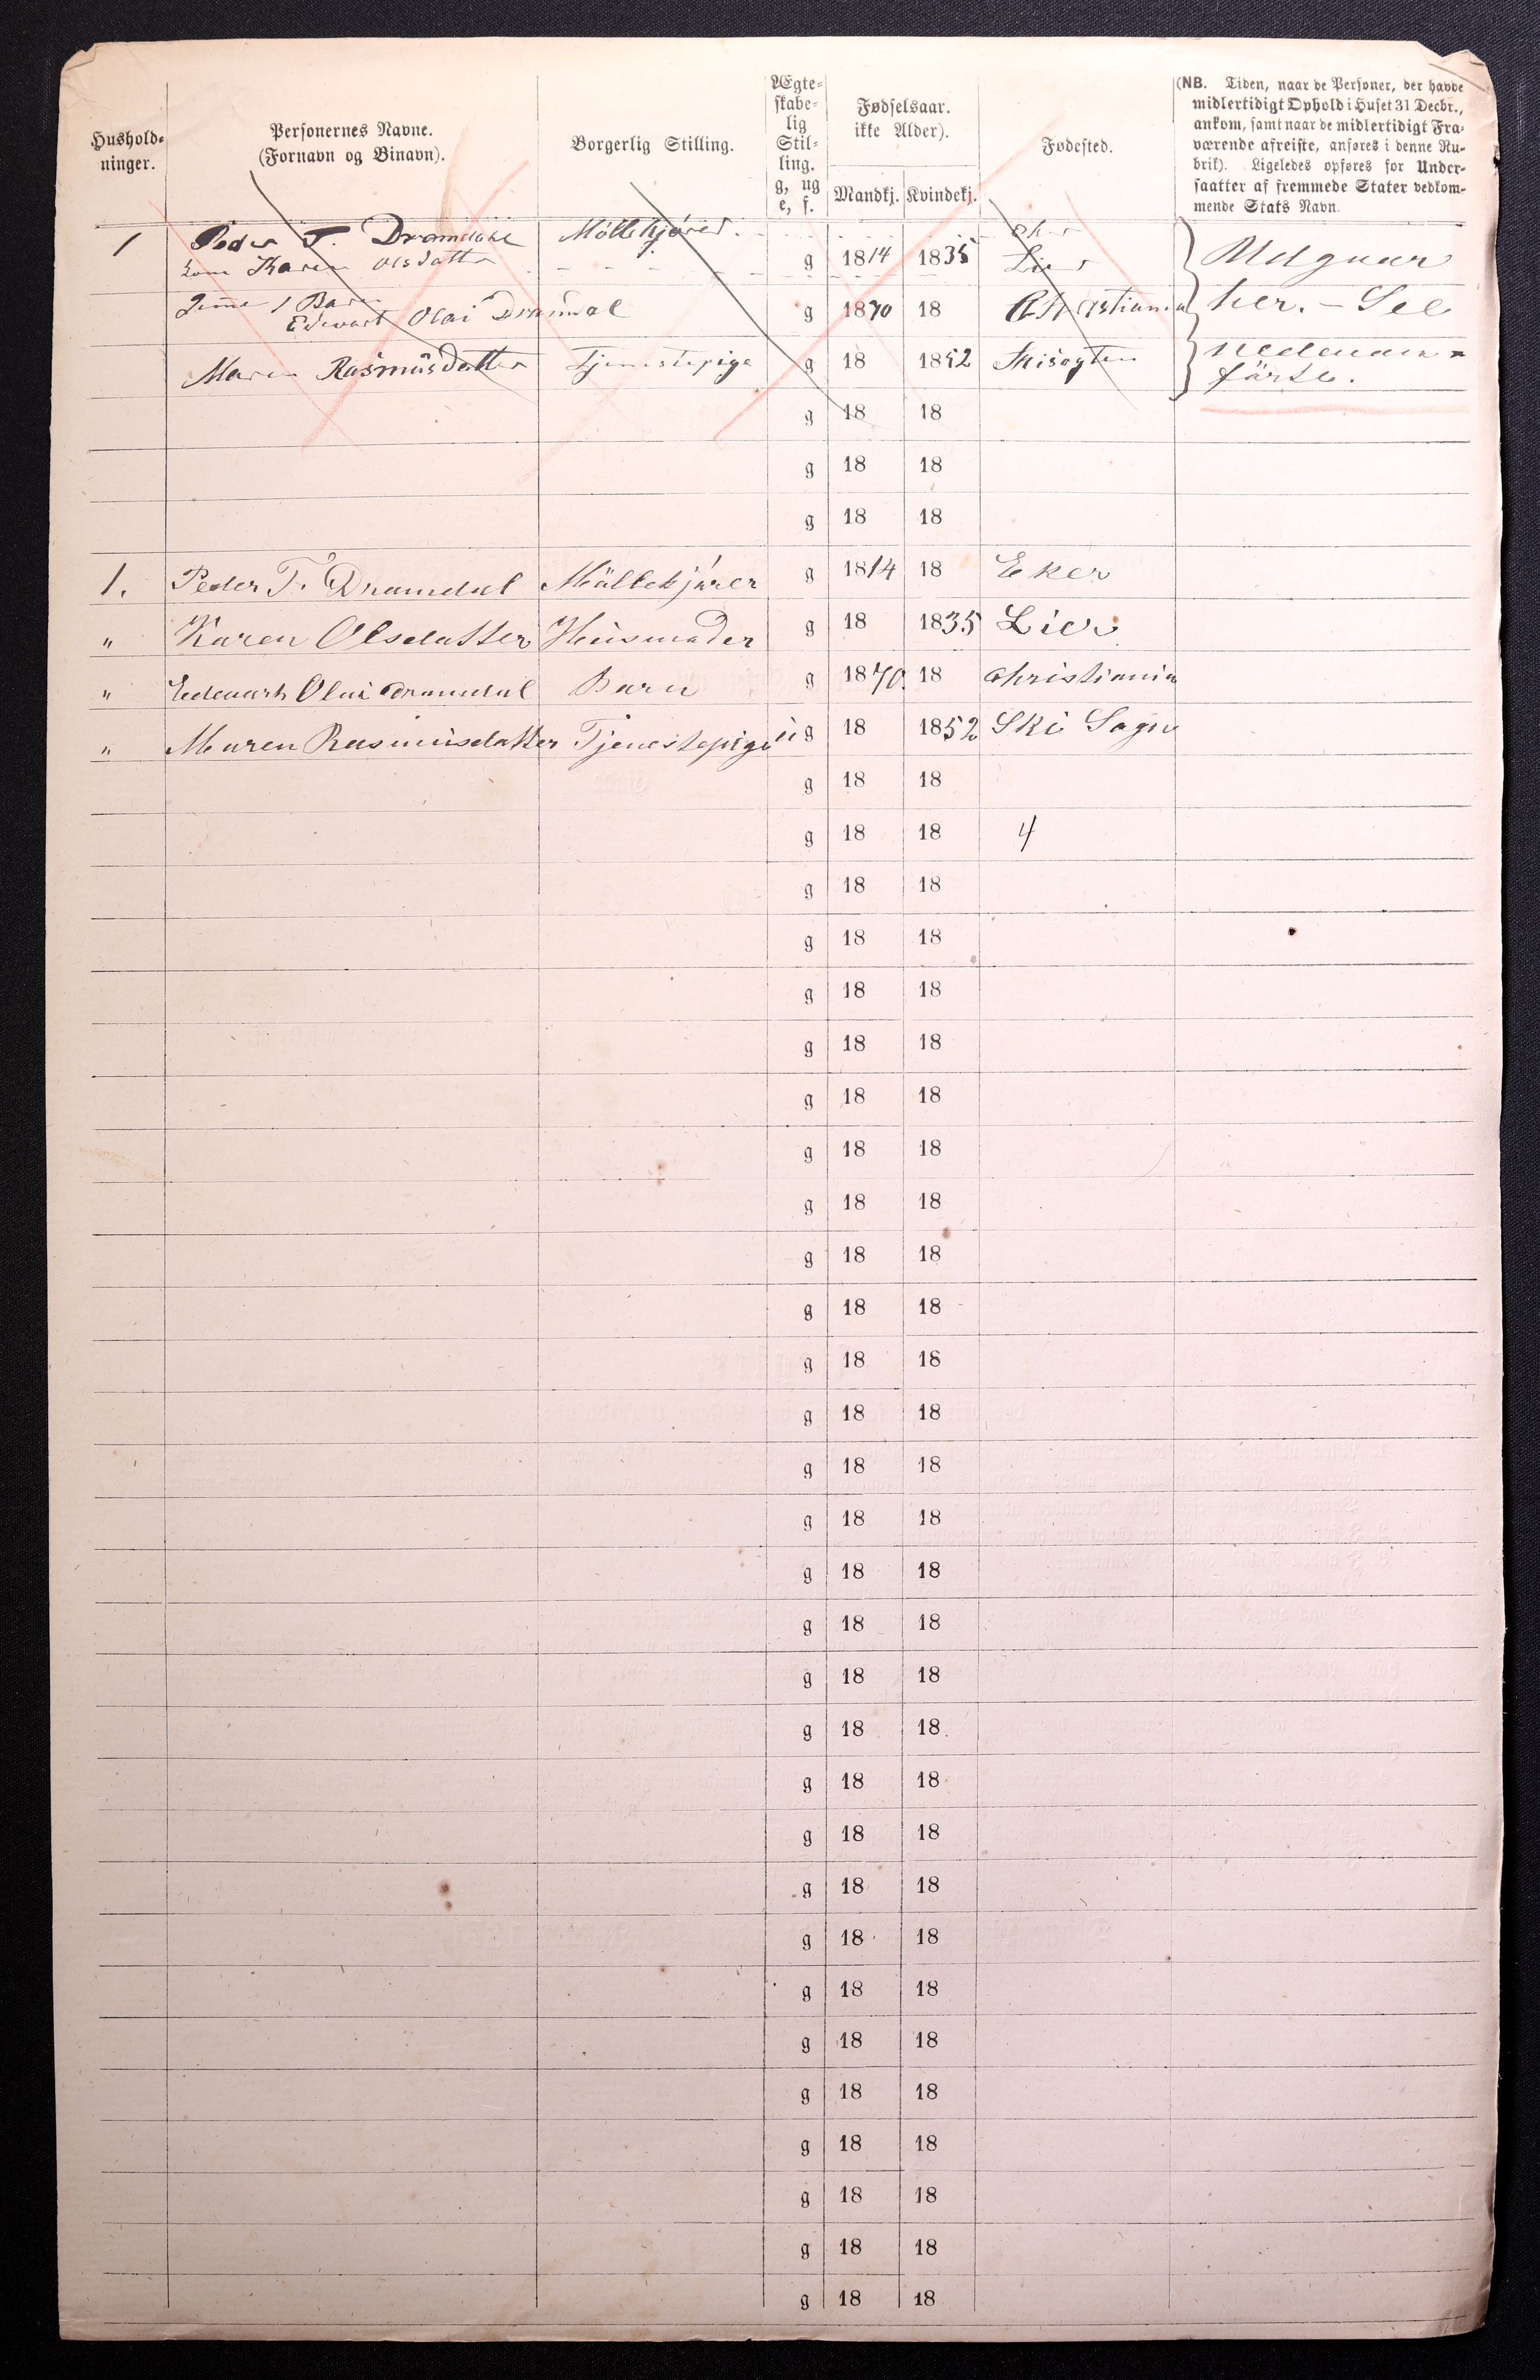 Hushold-
ninger.
Personernes Navne.
(Fornavn og Binavn).
Borgerlig Stilling.
Ægte-
skabe-
lig
Stil-
ling.
g, ug
e, f.
Fødselsaar.
ikke Alder).
Mandkj. Kvindekj.
Fødested.
(NB. Tiden, naar de Personer, der havde
midlertidigt Ophold i Huset 31 Decbr.,
ankom, samt naar de midlertidigt Fra-
værende afreiste, anføres i denne Ru-
brik). Ligeledes opføres for Under-
saatter af fremmede Stater vedkom-
mende Stats Navn.
1 Peder T. Dramdahl Möllekjörer.
Kone Karen Olsdatter g 1814 1835 Lier
1 Barn
Edevart Olai Dramdal g 1870 18 Christiania
Maren Rasmusdatter Tjenestepige g 18 1852
Udgaar
her. - See
nedenan-
förte.
g 18 18
g 18 18
g 18 18
1. Peder T. Dramdal Möllekjörer g 1814 18 Eker
" Karen Olsdatter Husmoder g 18 1835 Lier
" Edevart Olai Dramdal Barn g 1870. 18 Christiania
" Maren Rasmusdatter Tjenestepige ug 18 1852 Ski Sogn
g 18 18
g 18 18 4
g 18 18
g 18 18
g 18 18
g 18 18
g 18 18
g 18 18
g 18 18
g 18 18
g 18 18
g 18 18
g 18 18
g 18 18
g 18 18
g 18 18
g 18 18
g 18 18
g 18 18
g 18 18
g 18 18
g 18 18
g 18 18
g 18 18
g 18 18
g 18 18
g 18 18
g 18 18
g 18 18
g 18 18